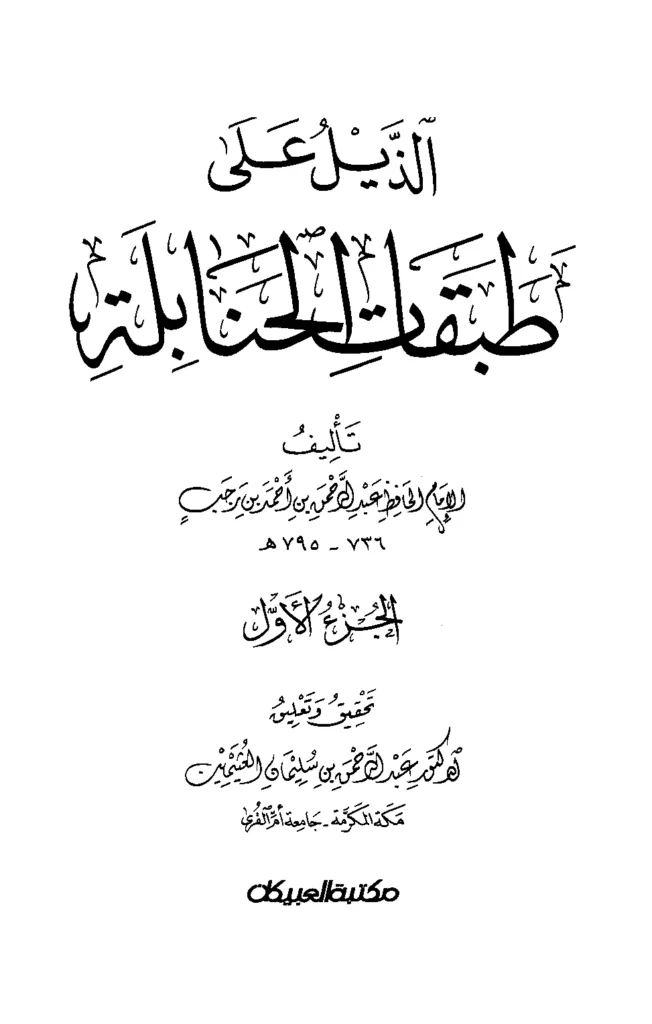 الذَّيْلُ عَلَى
طَبَقَاتِ الحَنَابِلَةِ
تَأْلِيفُ
الإِمَامِ الحَافِظِ عَبْدِ الرَّحْمَنِ بنِ أَحْمَدَ بنِ رَجَبٍ
٧٣٦ - ٧٩٥ هـ
الجُزْءُ الأَوَّلُ
تَحْقِيقُ وَتَعْلِيقُ
الدكتور عَبْدِ الرَّحْمَنِ بنِ سُلَيْمَانَ العُثَيْمِين
مَكَّة المكَرَّمَة - جَامِعَة أُمِّ القُرَى
مكتبة العبيكان